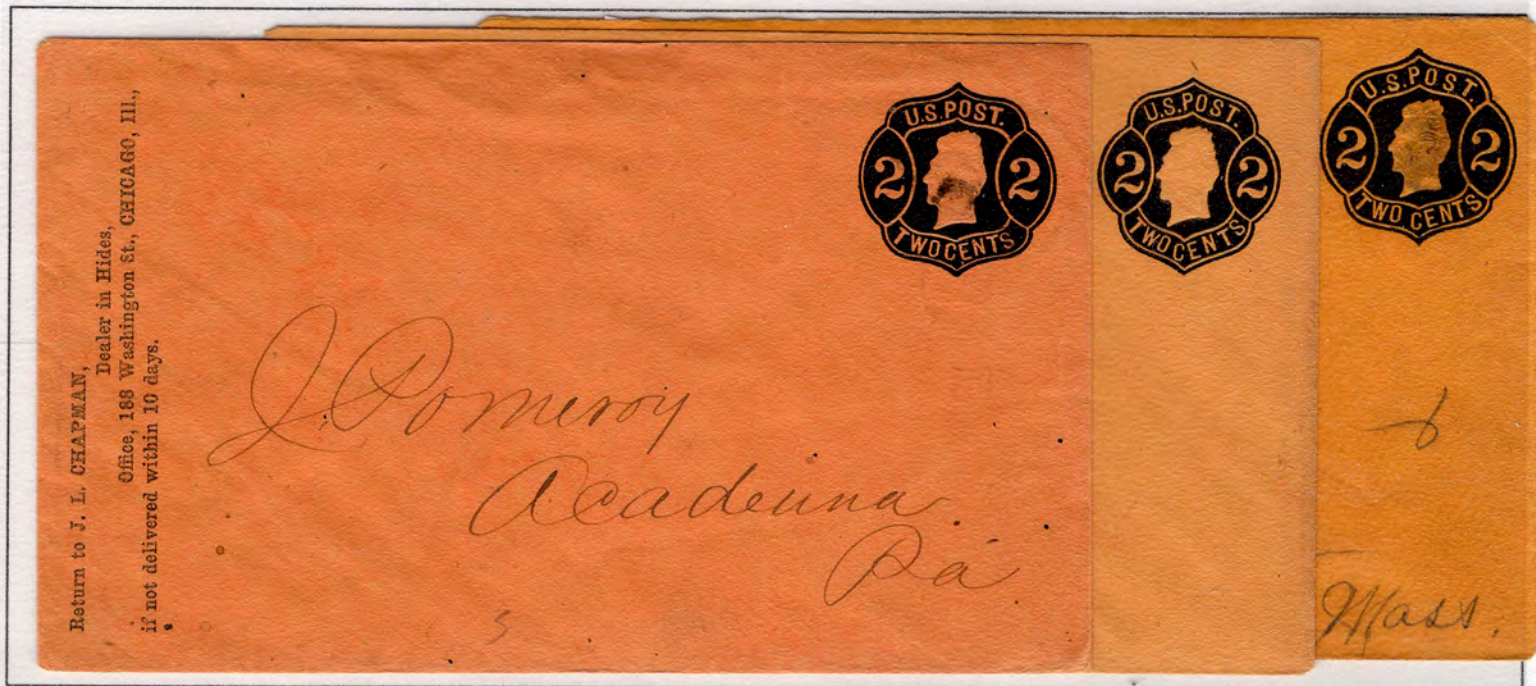 Return to J. L. CHAPMAN,
Dealer in Hides,
Office, 188 Washington St., CHICAGO, Ill.,
if not delivered within 10 days.
U.S.POST.
2 2
TWO CENTS
J. Pomeroy
Acadenna
Pa
U.S.POST.
2 2
TWO CENTS
U.S.POST.
2 2
TWO CENTS
Mass.